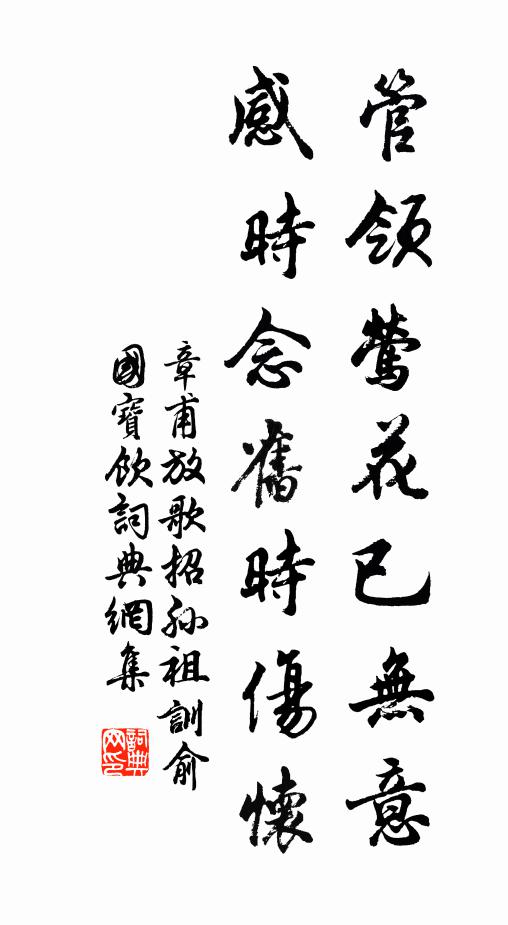 管領鶯花已無意
感時念舊時傷懷
章甫放歌招孙祖訓俞
國寶飲詞典網集
詞典
网印